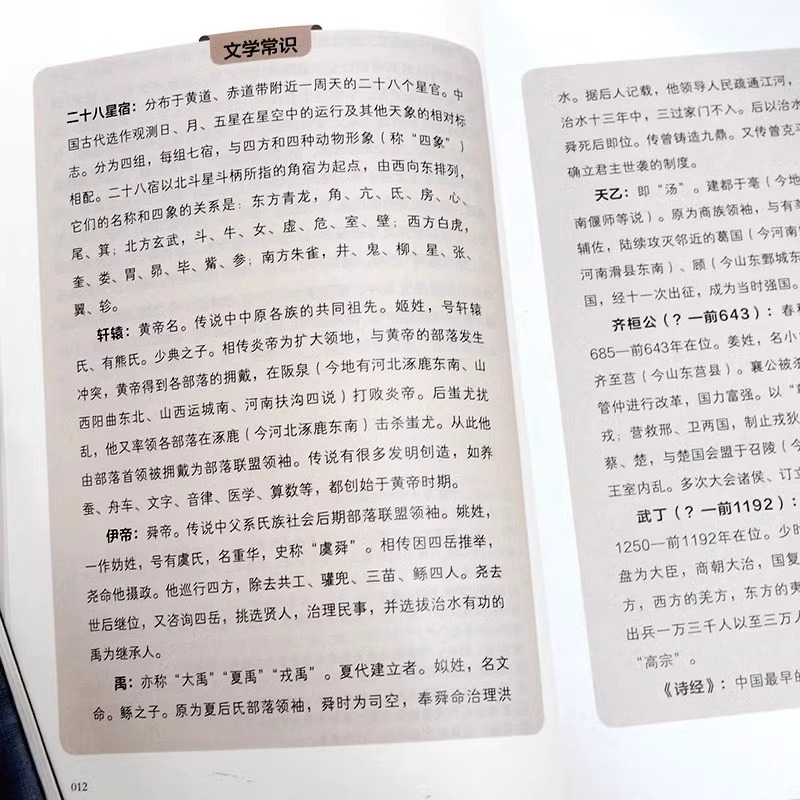 文学常识
二十八星宿：分布于黄道、赤道带附近一周天的二十八个星官。中
国古代选作观测日、月、五星在星空中的运行及其他天象的相对标
志。分为四组，每组七宿，与四方和四种动物形象（称“四象”）
相配。二十八宿以北斗星斗柄所指的角宿为起点，由西向东排列，
它们的名称和四象的关系是：东方青龙，角、亢、氐、房、心、
尾、箕；北方玄武，斗、牛、女、虚、危、室、壁；西方白虎，
奎、娄、胃、昴、毕、觜、参；南方朱雀，井、鬼、柳、星、张、
翼、轸。
轩辕：黄帝名。传说中中原各族的共同祖先。姬姓，号轩辕
氏、有熊氏。少典之子。相传炎帝为扩大领地，与黄帝的部落发生
冲突，黄帝得到各部落的拥戴，在阪泉（今地有河北涿鹿东南、山
西阳曲东北、山西运城南、河南扶沟四说）打败炎帝。后蚩尤扰
乱，他又率领各部落在涿鹿（今河北涿鹿东南）击杀蚩尤。从此他
由部落首领被拥戴为部落联盟领袖。传说有很多发明创造，如养
蚕、舟车、文字、音律、医学、算数等，都创始于黄帝时期。
伊帝：舜帝。传说中父系氏族社会后期部落联盟领袖。姚姓，
一作妫姓，号有虞氏，名重华，史称“虞舜”。相传因四岳推举，
尧命他摄政。他巡行四方，除去共工、驩兜、三苗、鲧四人。尧去
世后继位，又咨询四岳，挑选贤人，治理民事，并选拔治水有功的
禹为继承人。
禹：亦称“大禹”“夏禹”“戎禹”。夏代建立者。姒姓，名文
命。鲧之子。原为夏后氏部落领袖，舜时为司空，奉舜命治理洪
012
水。据后人记载，他领导人民疏通江河，
治水十三年中，三过家门不入。后以治水
舜死后即位。传曾铸造九鼎。又传曾克平
确立君主世袭的制度。
天乙：即“汤”。建都于亳（今地
南偃师等说）。原为商族领袖，与有莘
辅佐，陆续攻灭邻近的葛国（今河南
河南滑县东南）、顾（今山东鄄城东
国，经十一次出征，成为当时强国。
齐桓公（？—前643）：春秋
685—前643年在位。姜姓，名小
齐至莒（今山东莒县）。襄公被杀
管仲进行改革，国力富强。以“
戎；营救邢、卫两国，制止戎狄
蔡、楚，与楚国会盟于召陵（今
王室内乱。多次大会诸侯、订立
武丁（？—前1192）：
1250—前1192年在位。少时
盘为大臣，商朝大治，国复
方，西方的羌方，东方的夷
出兵一万三千人以至三万人
“高宗”。
《诗经》：中国最早的